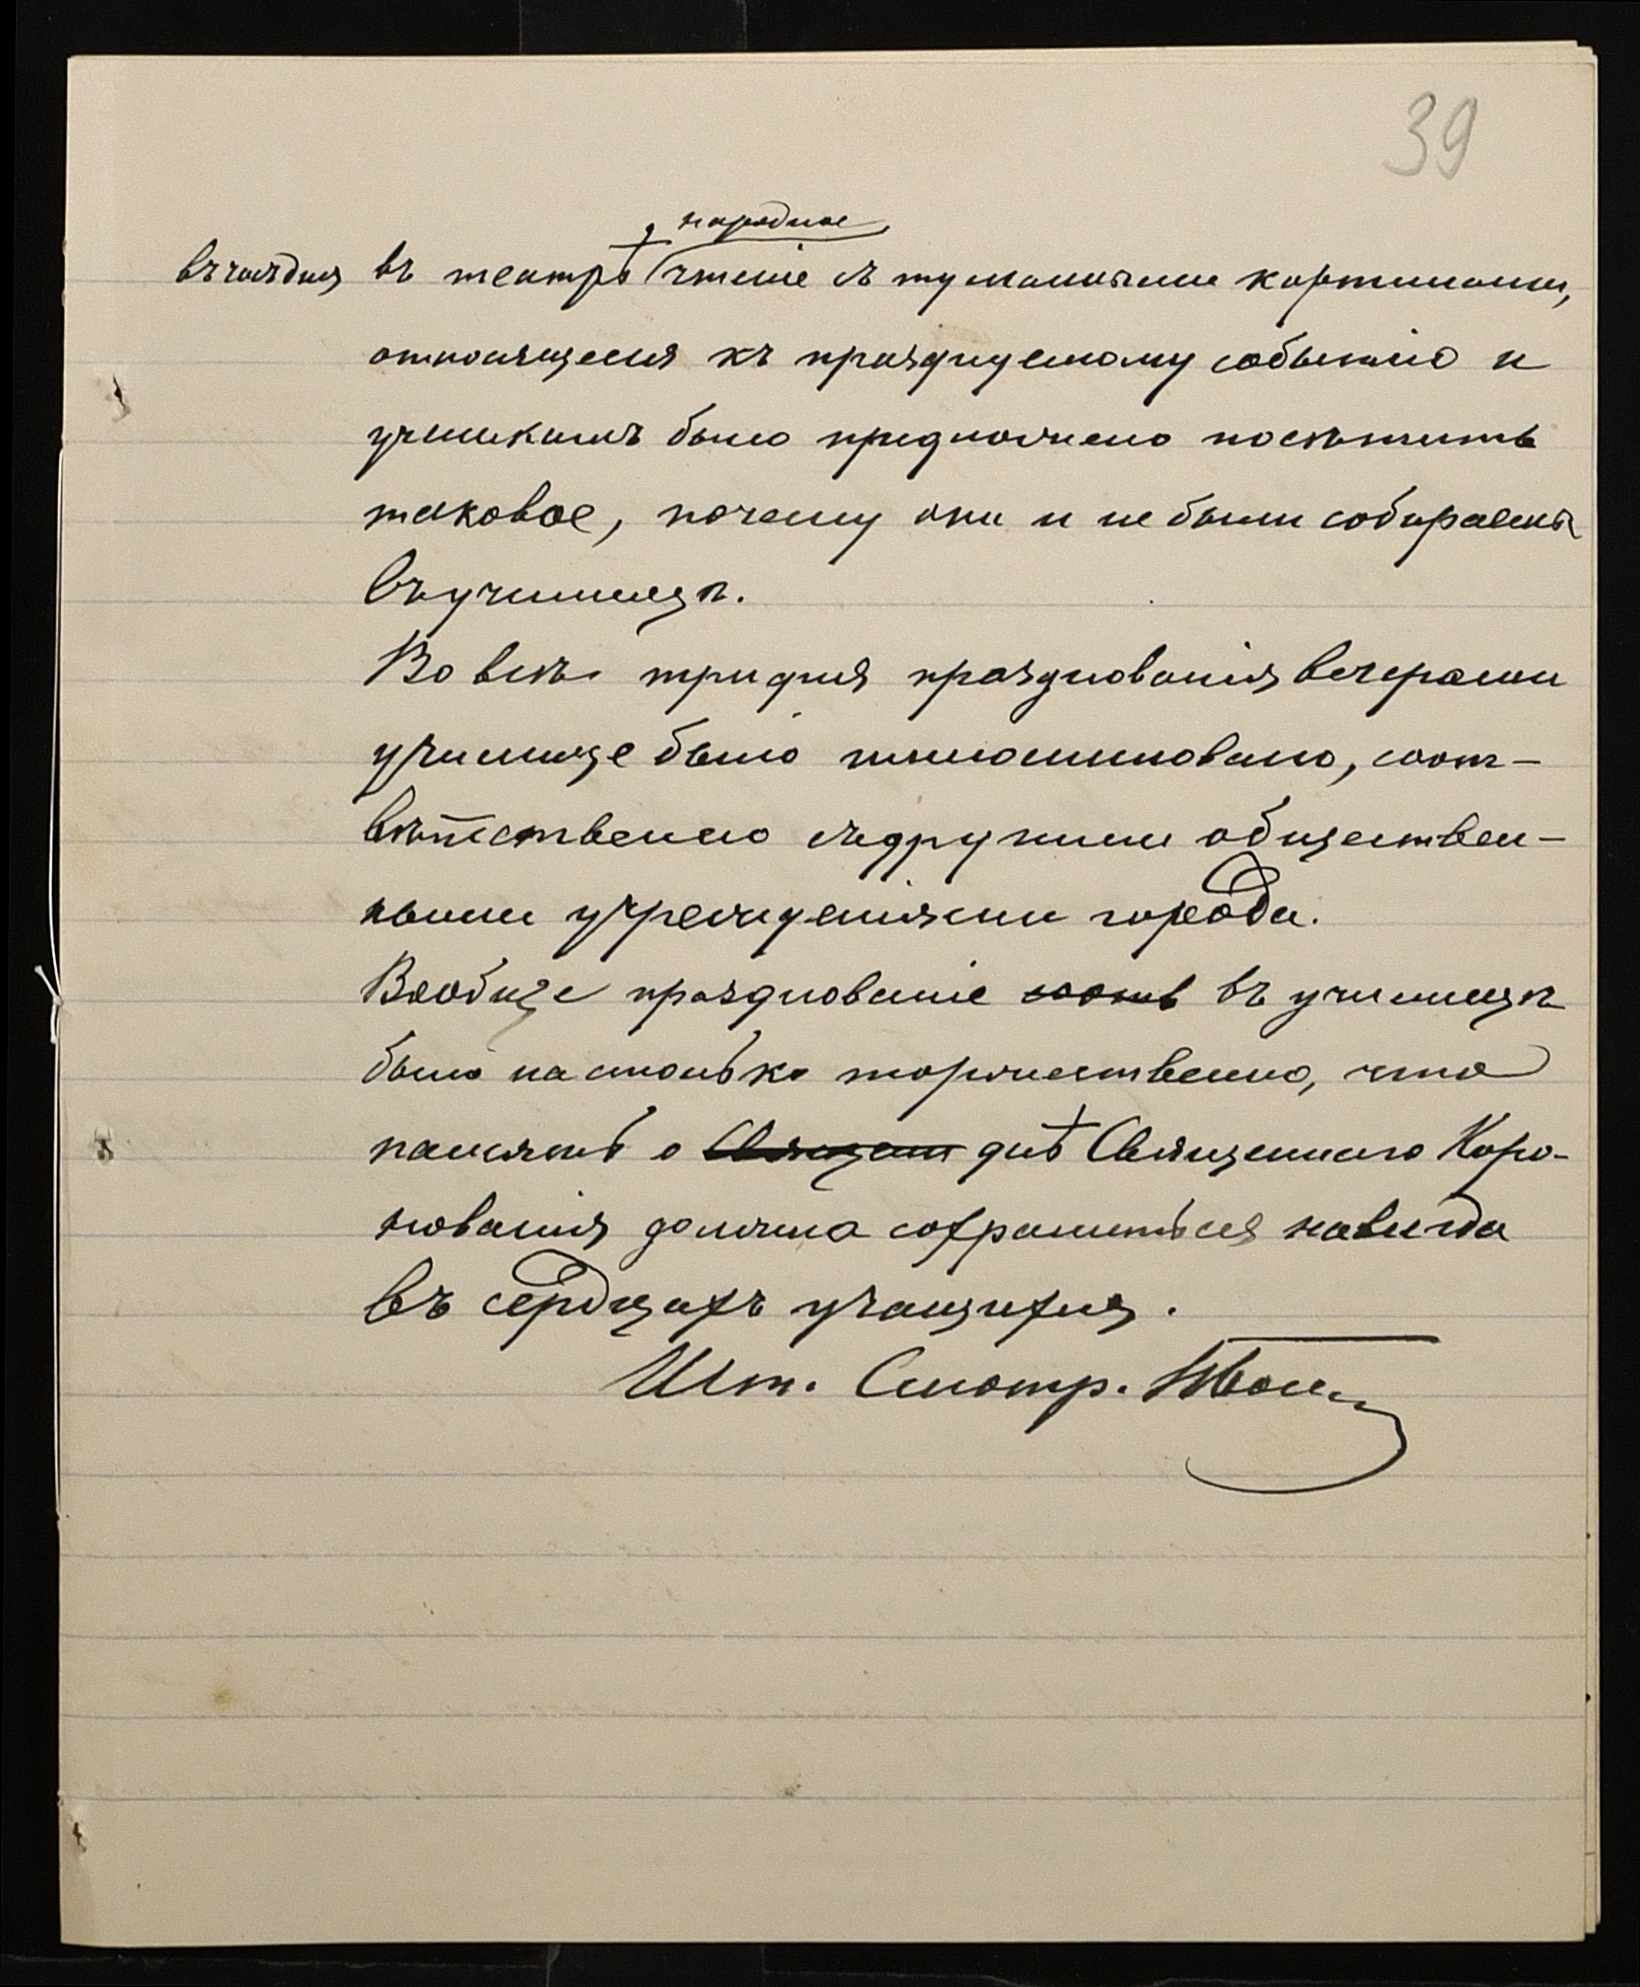 39
народное
въ часъ дня въ театрѣ чтеніе съ туманными картинами,
относящееся къ празднуемому событію и
ученикамъ было предложено посѣтить
таковое, почему они и не были собираемы
въ училищѣ.
Во всѣ три дня празднованія вечерами
училище было иллюминовано, соот-
вѣтственно съ другими обществен-
ными учрежденіями города.
Вообще празднованіе соотв въ училищѣ
было на столько торжественно, что
память о Священ днѣ Священнаго Коро-
нованія должна сохраниться навсегда
въ сердцахъ учащихся.
Шт. Смотр.